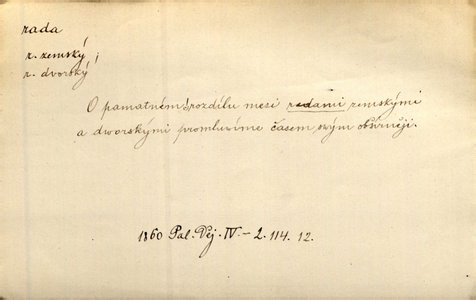 rada
r. zemský;
r. dvorský;
O památném rozdílu mezi radami zemskými
a dworskými promluvíme časem svým obšírněji.
1860 Pal. Děj. IV-2. 114. 12.